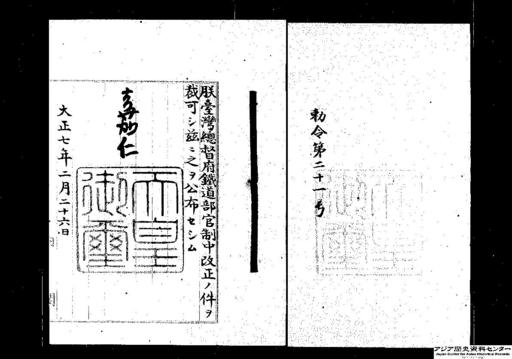 勅令第二十一号
朕臺灣總督府鐵道部官制中改正ノ件ヲ
裁可シ茲ニ之ヲ公布セシム
嘉仁
天皇
御璽
大正七年二月二十六日
アジア歴史資料センター
Japan Center for Asian Historical Records